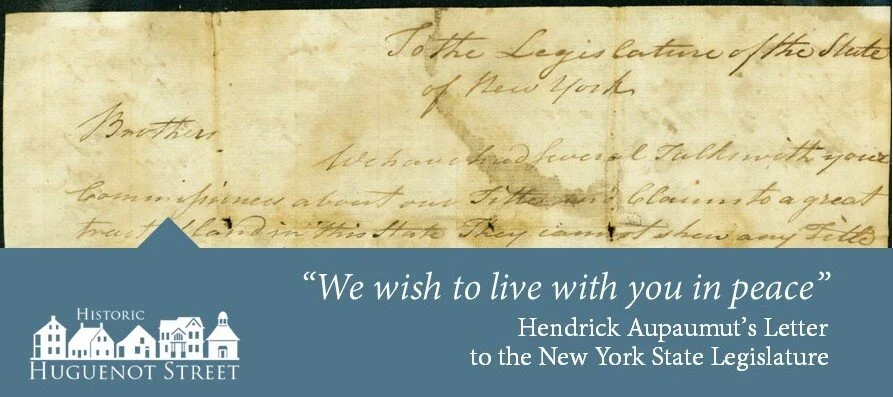 To the Legislature of the State
of New York
Brothers
We have had several Talks with your
Commissioners about our Title and Claims to a great
tract of land in this State They cannot shew any Title
“We wish to live with you in peace”
Hendrick Aupaumut’s Letter
to the New York State Legislature
HISTORIC
HUGUENOT STREET